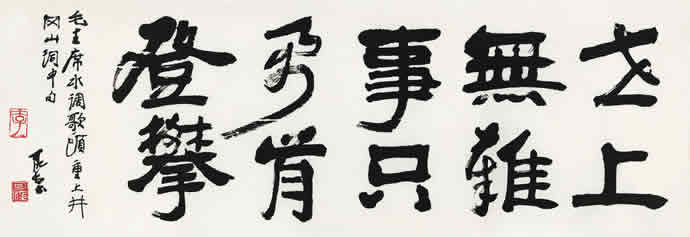 世上
無難
事只
要肯
登攀
毛主席水调歌頭重上井
冈山词中句